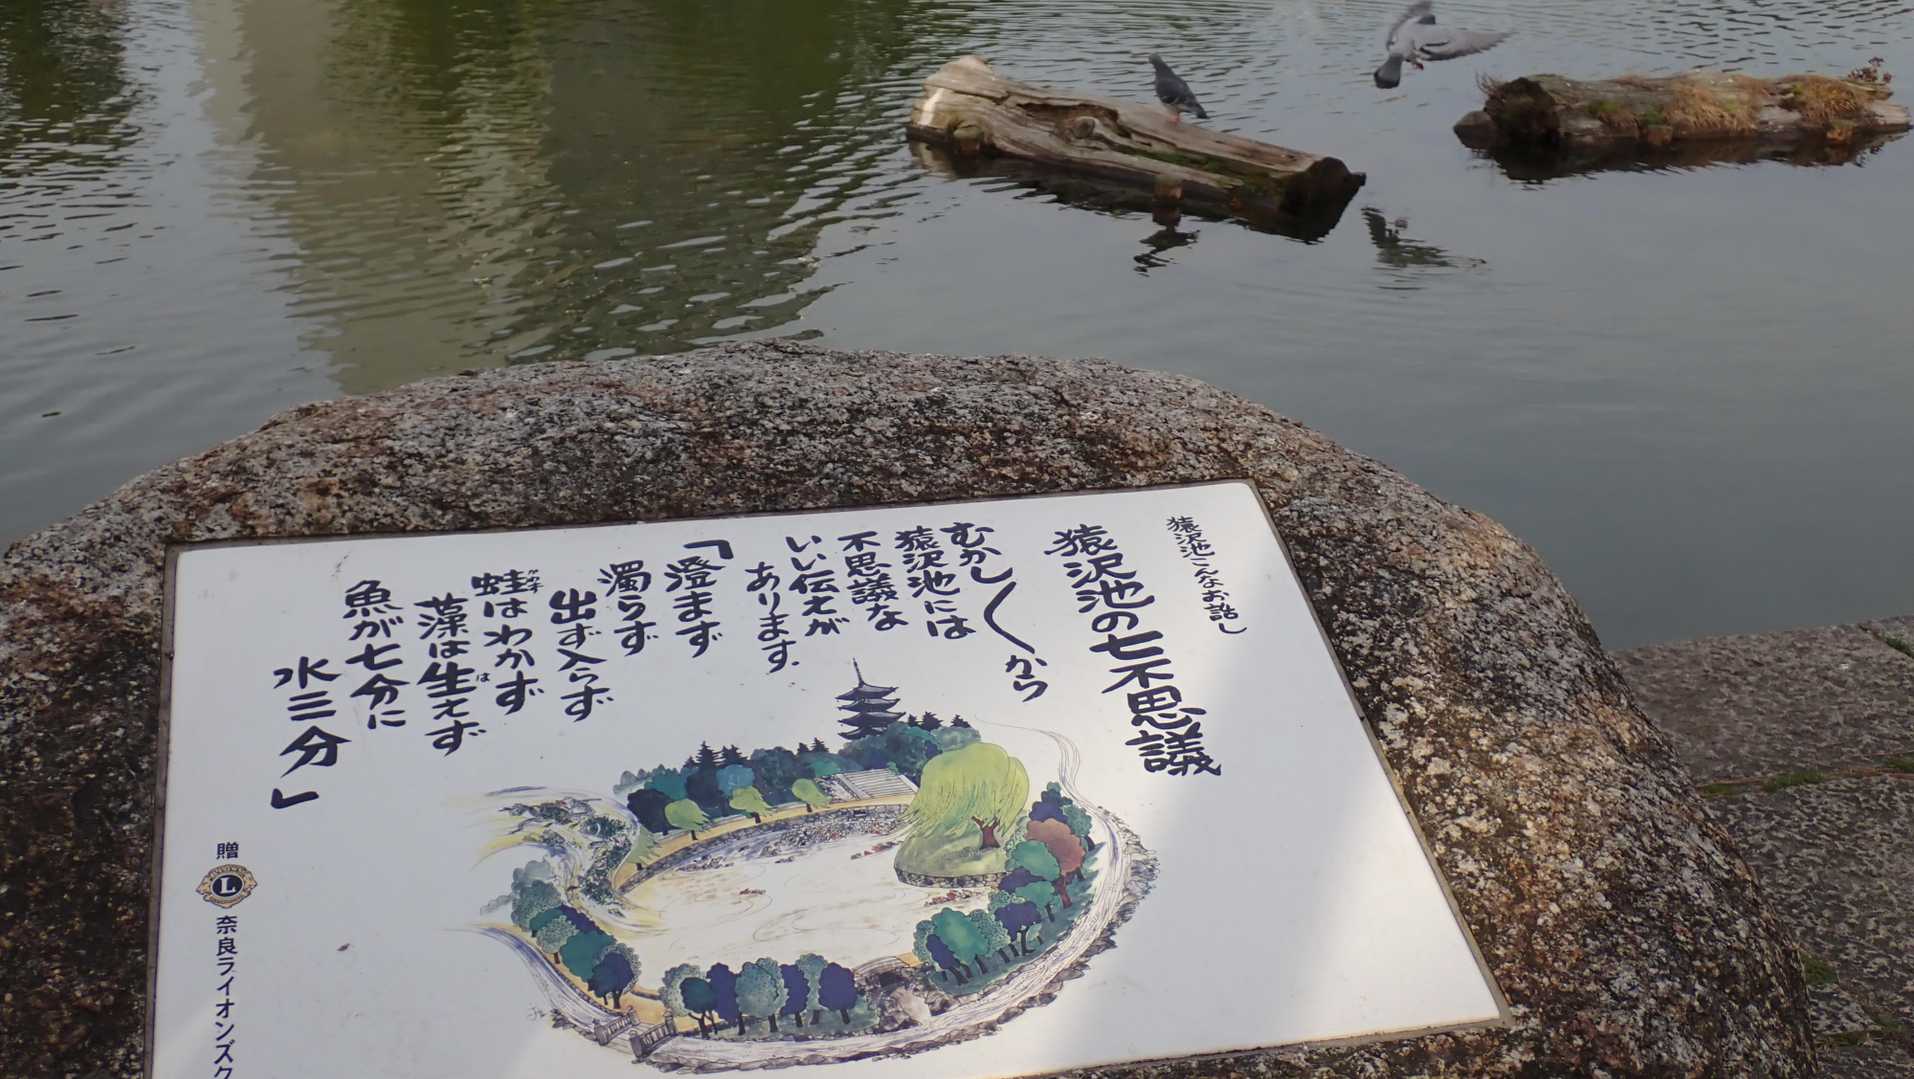 猿沢池こんなお話し
猿沢池の七不思議
むかし〱から
猿沢池には
不思議な
いい伝えが
あります.
「澄まず
濁らず
出ず入らず
蛙はわかず
かわず
藻は生えず
は
魚が七分に
水三分」
贈
L
奈良ライオンズク